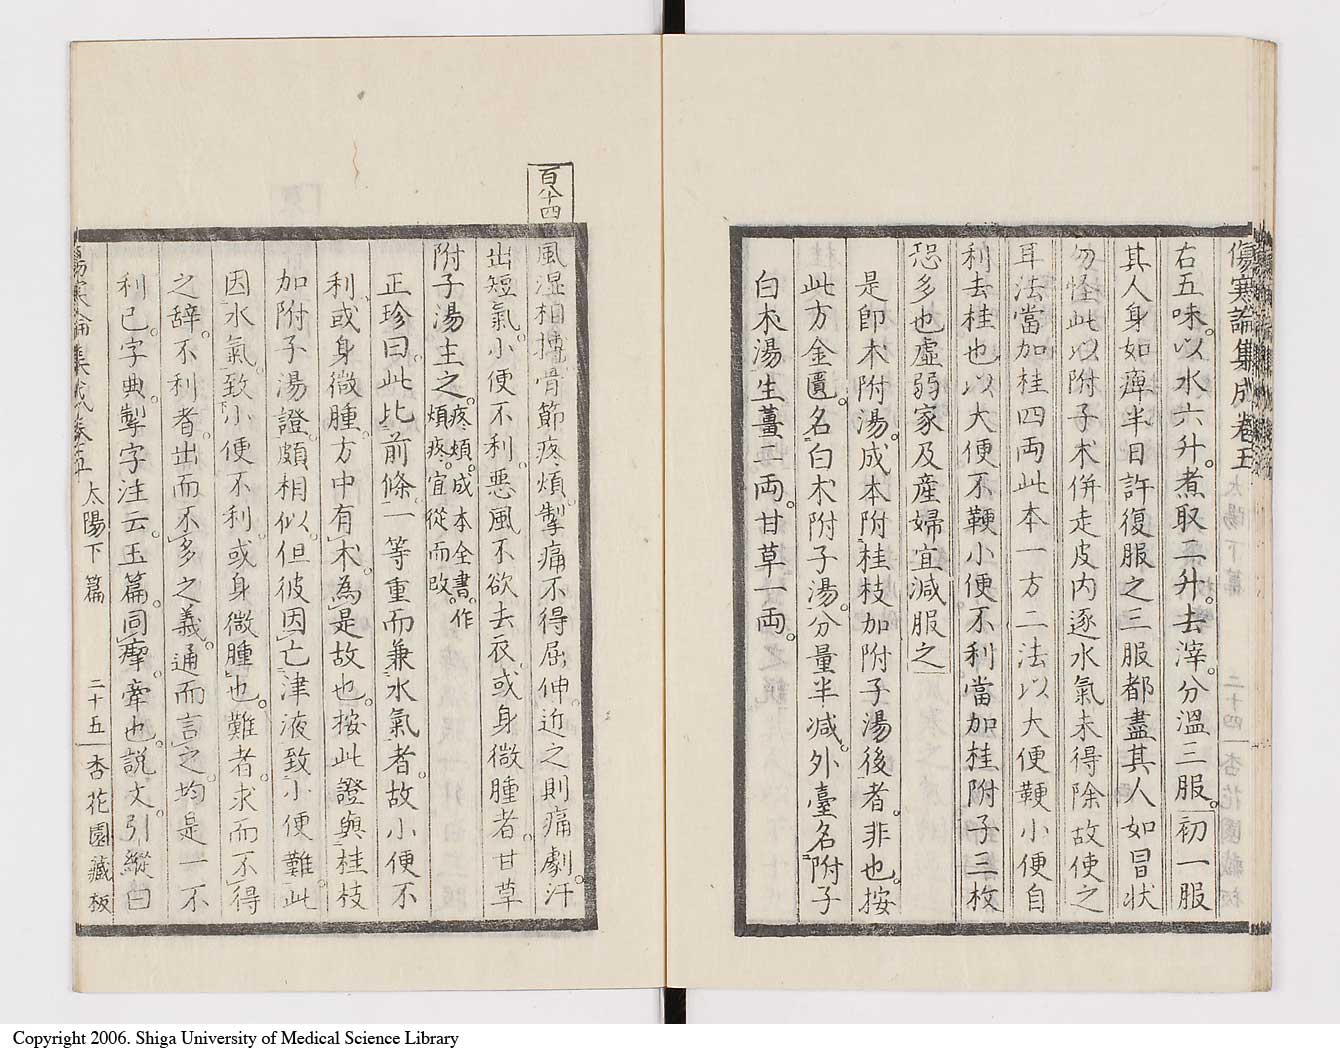 傷寒論集成卷五
右五味。以水六升。煮取二升。去滓。分溫三服。初一服
其人身如痺半日許復服之三服都盡其人如冒狀
勿怪此以附子朮併走皮内逐水氣未得除故使之
耳法當加桂四両此本一方二法以大便鞕小便自
利去桂也以大便不鞕小便不利當加桂附子三枚
恐多也虛弱家及産婦宜減服之
是即朮附湯。成本附桂枝加附子湯後者。非也。按
此方金匱。名白朮附子湯。分量半減。外臺名附子
白朮湯生薑二両。甘草一両。
太陽下篇 二十四 杏花園藏板
百八十四
風湿相摶骨節疼煩。掣痛不得屈伸。近之則痛劇。汗
出短氣。小便不利。悪風不欲去衣。或身微腫者。甘草
附子湯主之。疼煩。成本全書。作
煩疼。宜從而改。
正珍曰。此比前條。一等重而兼水氣者。故小便不
利。或身微腫。方中有朮。為是故也。按此證與桂枝
加附子湯證。頗相似。但彼因亡津液致小便難。此
因水氣。致小便不利。或身微腫也。難者。求而不得
之辞。不利者。出而不多之義。通而言之。均是一不
利已。字典。掣字注云。玉篇。同瘳。牽也。説文。引縱曰
傷寒論集成卷五 太陽下篇 二十五 杏花園藏板